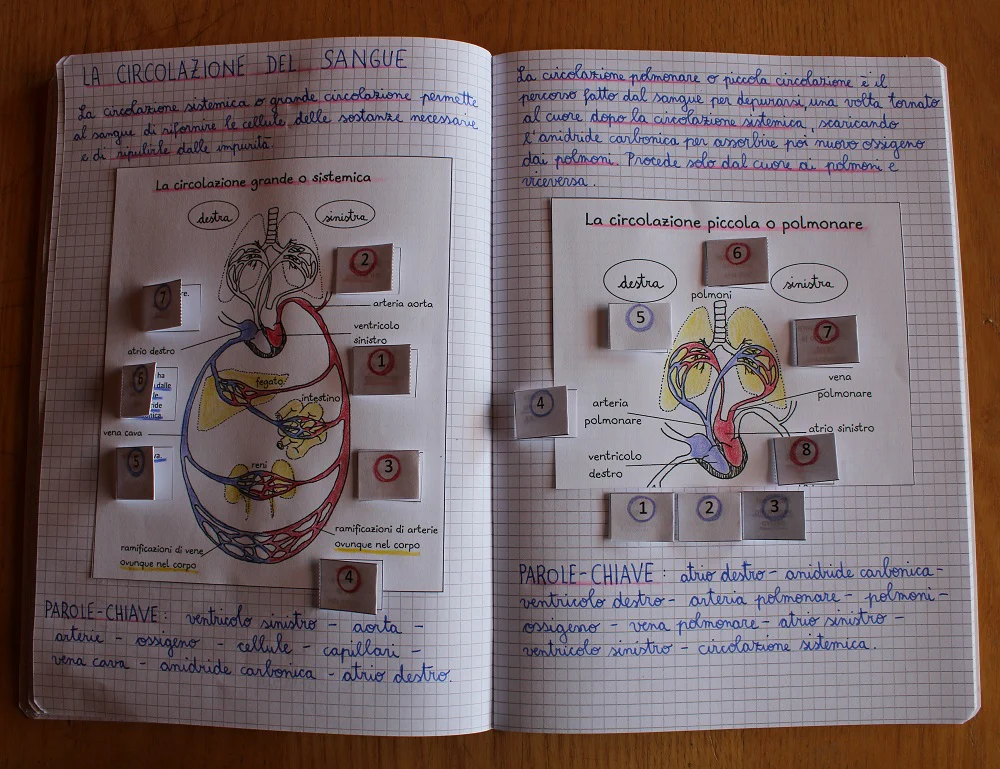 LA CIRCOLAZIONE DEL SANGUE
La circolazione sistemica o grande circolazione permette
al sangue di rifornire le cellule delle sostanze necessarie
e di ripulirle dalle impurità.
La circolazione grande o sistemica
destra
sinistra
2
7
re.
arteria aorta
ventricolo
sinistro
atrio destro
1
6
ha
dalle
fegato
intestino
vena cava
5
3
reni
ramificazioni di arterie
ovunque nel corpo
ramificazioni di vene
ovunque nel corpo
4
PAROLE-CHIAVE: ventricolo sinistro - aorta -
arterie - ossigeno - cellule - capillari -
vena cava - anidride carbonica - atrio destro.
La circolazione polmonare o piccola circolazione è il
percorso fatto dal sangue per depurarsi, una volta tornato
al cuore dopo la circolazione sistemica, scaricando
l'anidride carbonica per assorbire poi nuovo ossigeno
dai polmoni. Procede solo dal cuore ai polmoni e
viceversa.
La circolazione piccola o polmonare
6
destra
sinistra
polmoni
5
7
vena
polmonare
4
arteria
polmonare
atrio sinistro
ventricolo
destro
8
1
2
3
PAROLE-CHIAVE: atrio destro - anidride carbonica -
ventricolo destro - arteria polmonare - polmoni -
ossigeno - vena polmonare - atrio sinistro -
ventricolo sinistro - circolazione sistemica.